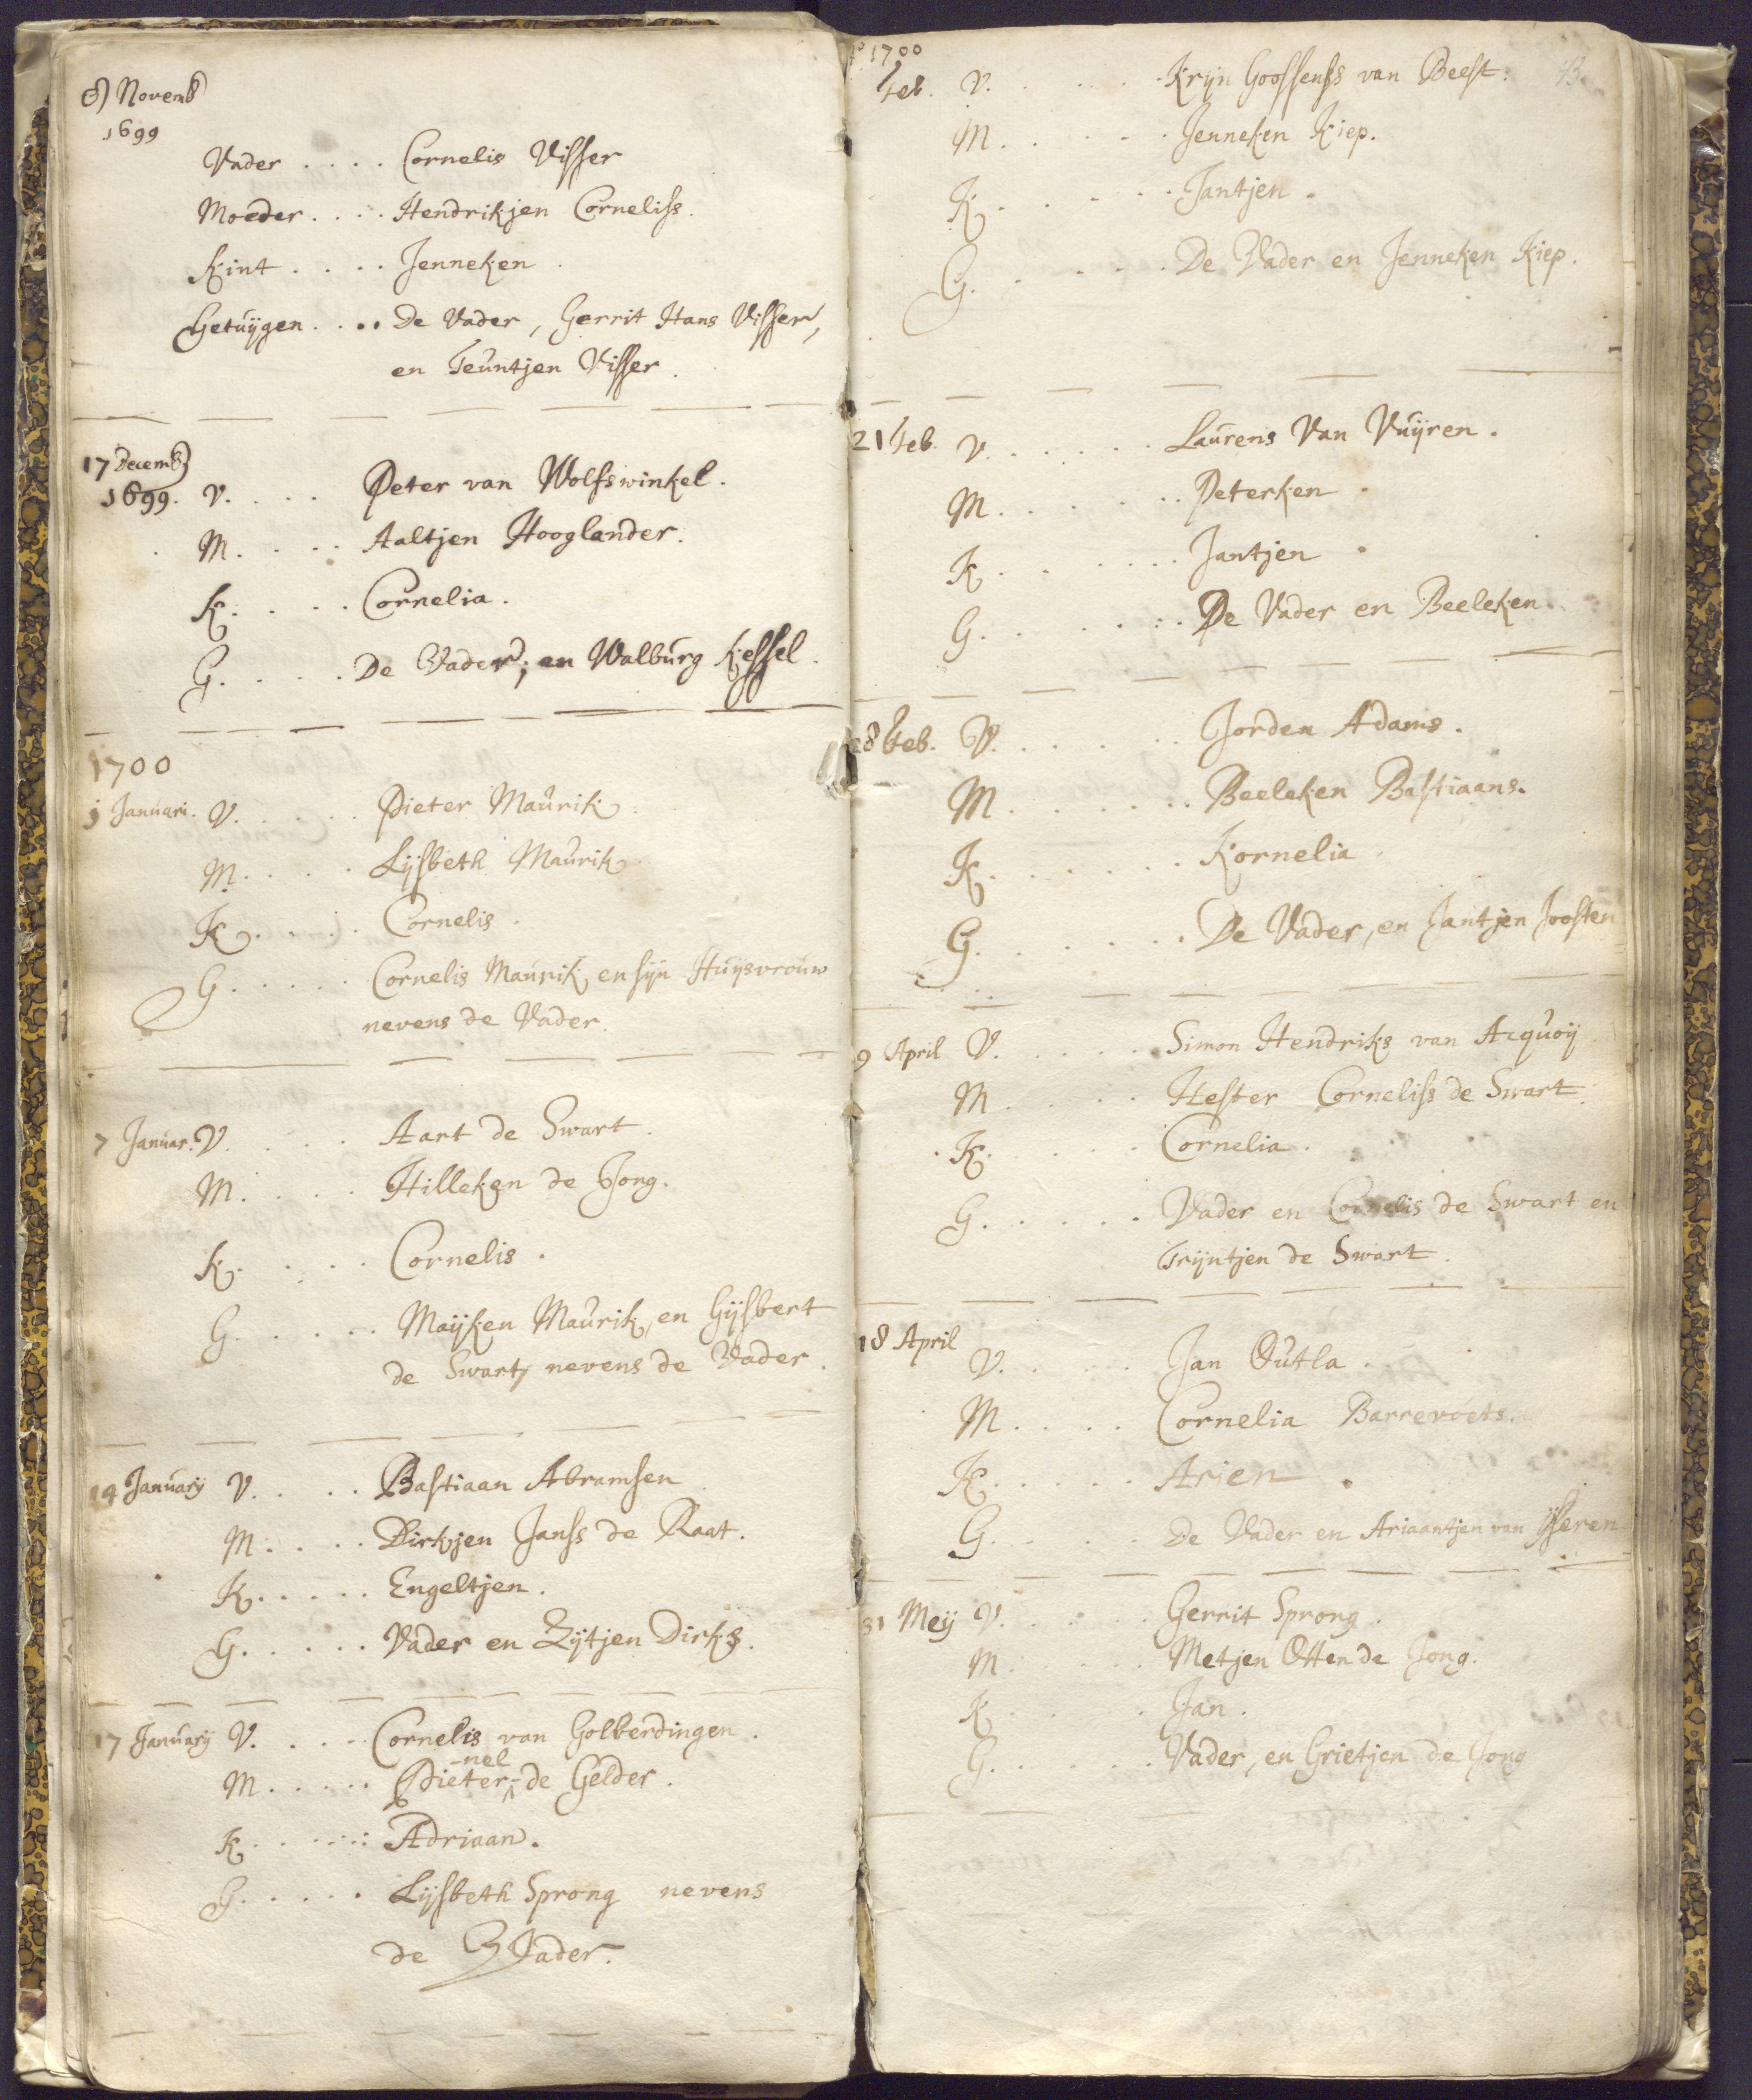 8 Novemb
1699
Vader .... Cornelis Visser
Moeder .... Hendrikjen Corneliss.
Kint .... Jenneken
Getuijgen .... De Vader, Gerrit Hans Visser,
en Teuntjen Visser.
17 Decemb
1699. V. .... Peter van Wolfswinkel.
M. .... Aaltjen Hooglander.
K. .... Cornelia.
G. .... De Vader, en Walburg Kessel.
1700
Januari. V. .... Pieter Maurik
M. .... Lijsbeth Maurik
K. .... Cornelis.
G. .... Cornelis Maurik, en sijn Huijsvrouw
nevens de Vader.
7 Januar. V. .... Aart de Swart.
M. .... Hilleken de Jong.
K. .... Cornelis.
G. .... Maijken Maurik, en Gijsbert
de Swart, nevens de Vader.
14 Januarij V. .... Bastiaan Abramsen
M. .... Dirkjen Janss de Raat.
K. .... Engeltjen.
G. .... Vader en Zijtjen Dirks.
17 Januarij V. .... Cornelis van Golberdingen.
-nel
M. .... Pieter- de Gelder.
K. .... Adriaan.
G. .... Lijsbeth Sprong nevens
de Vader.
1700
Feb. V. .... Krijn Goossenss van Beest.
M. .... Jenneken Kiep.
K. .... Jantjen.
G. .... De Vader en Jenneken Kiep.
21 Feb. V. .... Laurens Van Vuijren.
M. .... Peterken.
K. .... Jantjen.
G. .... De Vader en Beeleken.
28 Feb. V. .... Jorden Adams.
M. .... Beeleken Bastiaans.
K. .... Kornelia.
G. .... De Vader, en Jantjen Joosten
9 April V. .... Simon Hendriks van Acquoij
M. .... Hester Corneliss de Swart.
K. .... Cornelia.
G. .... Vader en Cornelis de Swart en
Trijntjen de Swart.
18 April
V. .... Jan Outla.
M. .... Cornelia Barrevoets.
K. .... Arien.
G. .... De Vader en Ariaantjen van Ijseren
31 Meij V. .... Gerrit Sprong.
M. .... Metjen Otten de Jong.
K. .... Jan.
G. .... Vader, en Grietjen de Jong